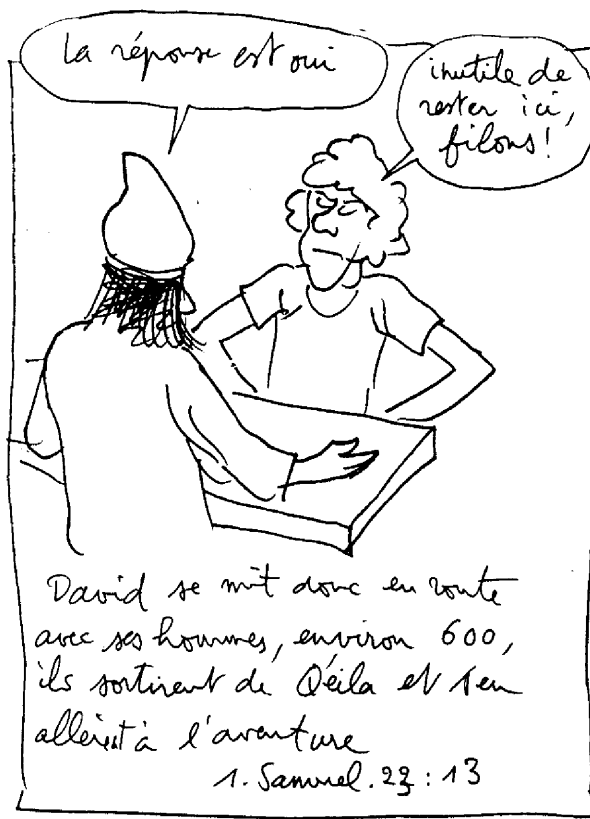 La réponse est oui
inutile de
rester ici,
filons!
David se mit donc en route
avec ses hommes, environ 600,
ils sortirent de Qéila et s'en
allèrent à l'aventure
1. Samuel. 23 : 13